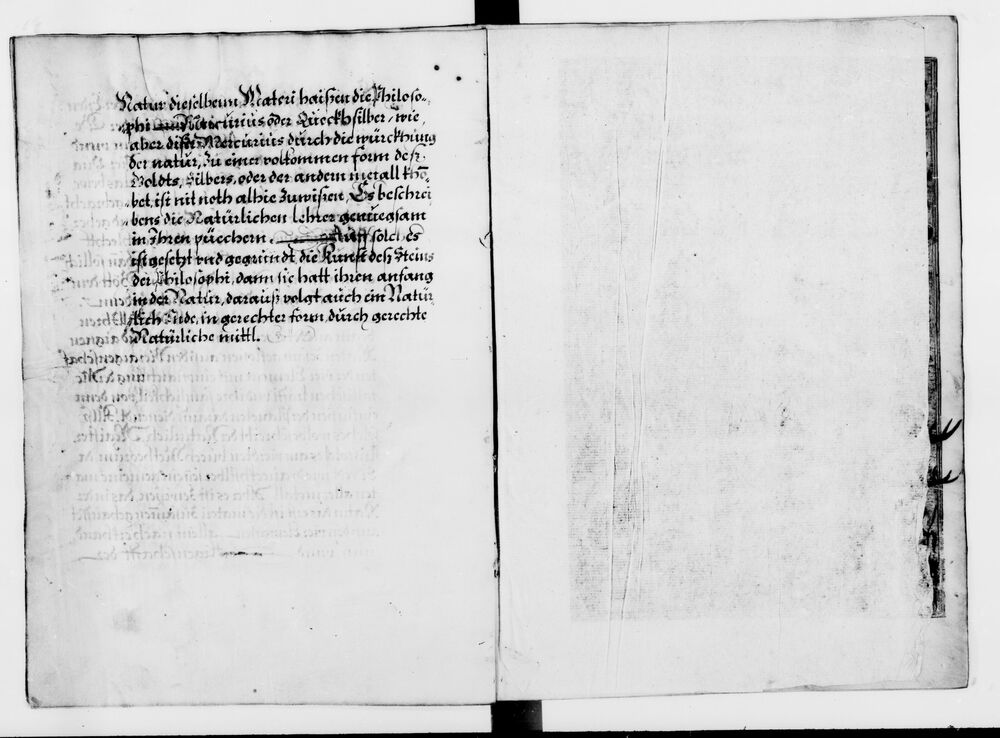 Natur dieselbenn Materi haissen die Philoso-
phi Mercurius oder Queckhsilber, wie,
aber diser Mercurius durch die würckhung
der natur, zu einer volkommen form deß
Goldts, Silbers, oder der andern metall khō-
bet, ist nit noth alhie zuwissen, Es beschrei
bens die Natürlichen lehrer genuegsam
in Ihren püechern. Auff solches
ist gesetzt vnd gegrundt die Kunst deß Steins
der Philosophi, dann sie hatt ihren anfang
in der Natur, darauß volgt auch ein Natür
lich Ende, in gerechter form, durch gerechte
Natürliche mittl.